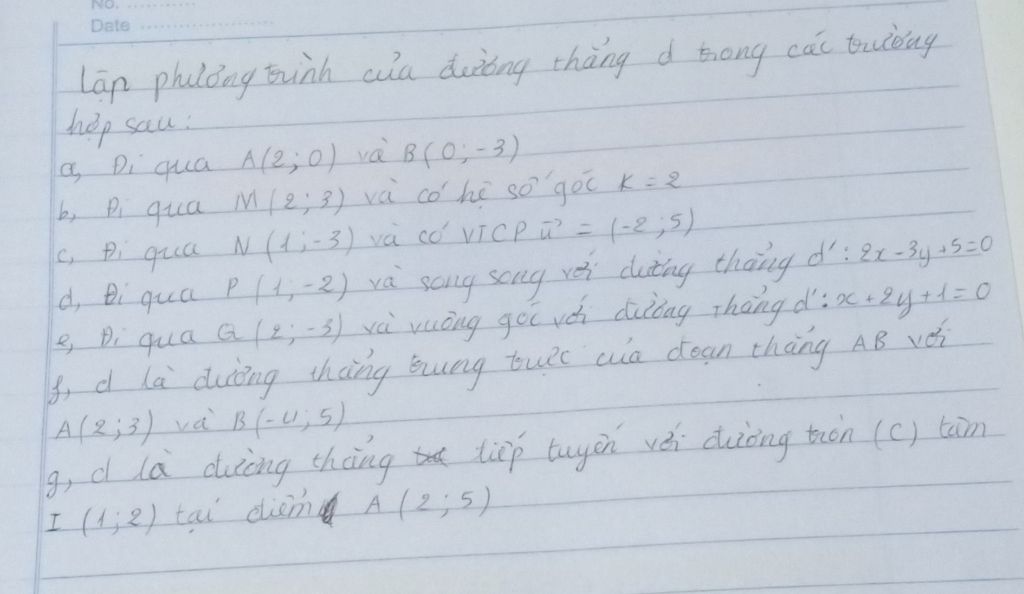 No. ............
Date ........................
Lập phương trình của đường thẳng d trong các trường
hợp sau:
a, Đi qua A(2;0) và B(0;-3)
b, Đi qua M(2;3) và có hệ số góc K = 2
c, Đi qua N(1;-3) và có VTCP u⃗ = (-2;5)
d, Đi qua P(1;-2) và song song với đường thẳng d': 2x-3y+5=0
e, Đi qua Q(2;-3) và vuông góc với đường thẳng d': x+2y+1=0
f, d là đường thẳng trung trực của đoạn thẳng AB với
A(2;3) và B(-4;5)
g, d là đường thẳng tiếp tuyến với đường tròn (C) tâm
I (1;2) tại điểm A (2;5)